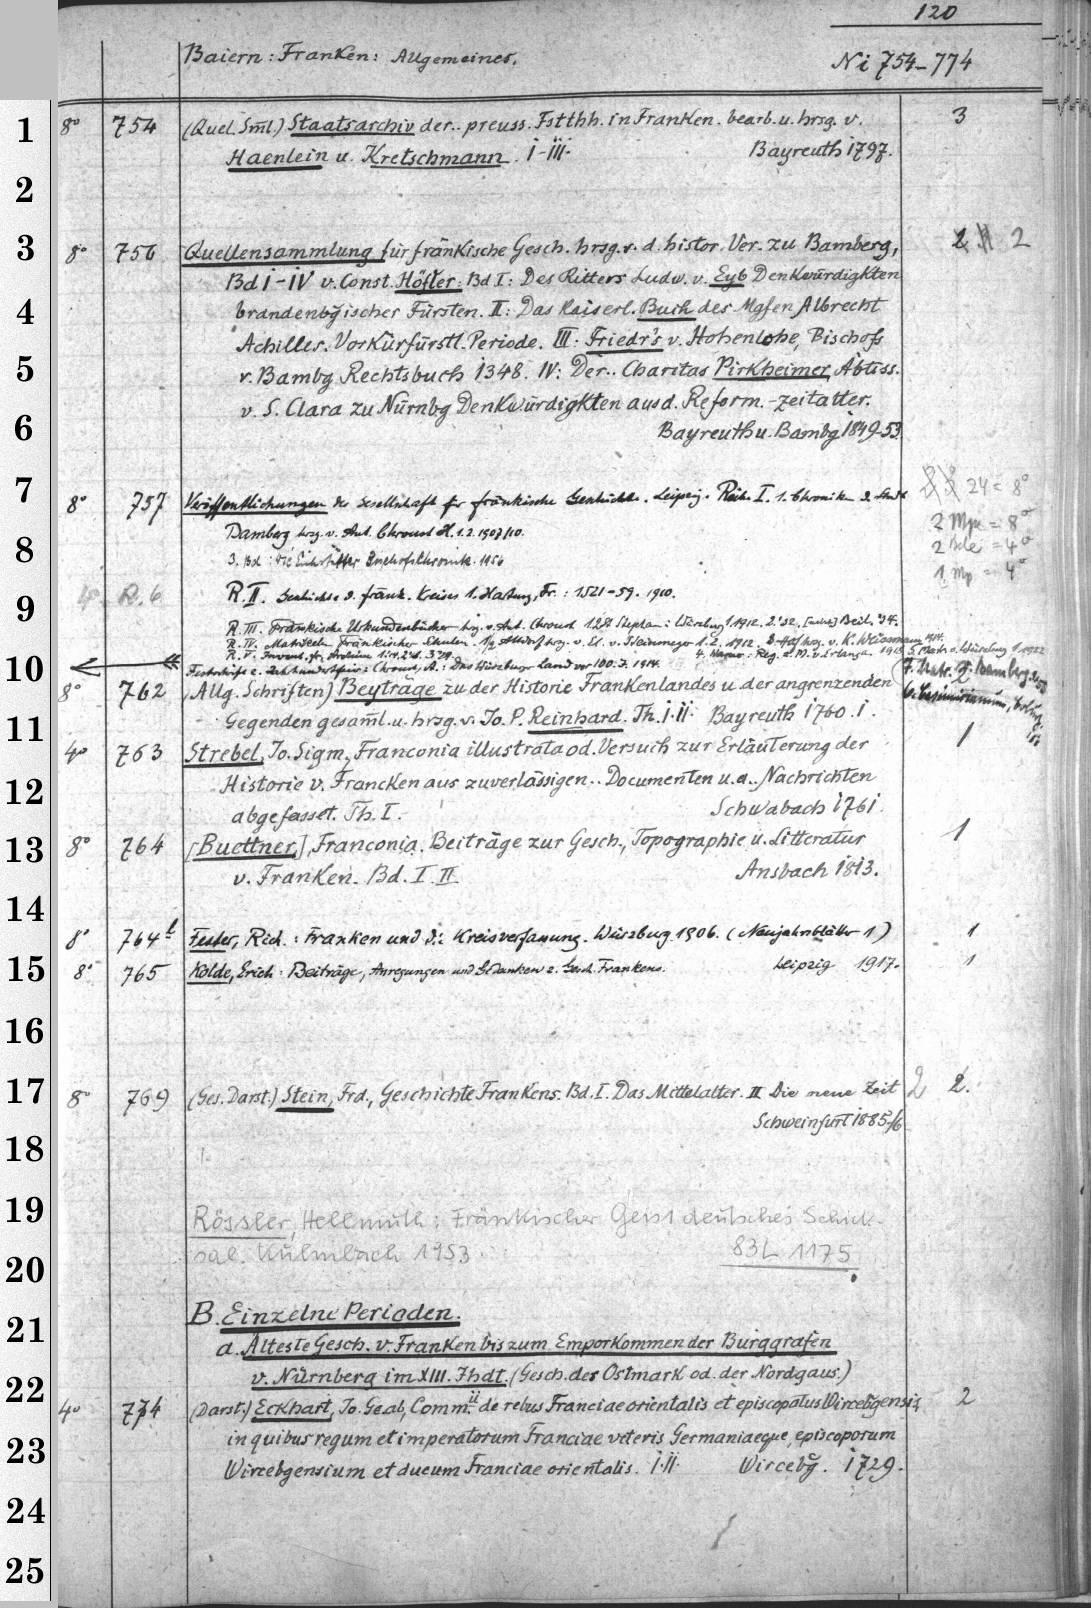 120
Baiern: Franken: Allgemeines. Ni 754-774
1 8° 754 (Quel. Sml.) Staatsarchiv der.. preuss. Fstthh. in Franken. bearb. u. hrsg. v. 3
Haenlein u. Kretschmann. I-III. Bayreuth 1797.
2
3 8° 756 Quellensammlung für fränkische Gesch. hrsg. v. d. histor. Ver. zu Bamberg, 2 2
Bd I-IV v. Const. Höfler: Bd I: Des Ritters Ludw. v. Eyb Denkwürdigkten
4 brandenbgischer Fürsten. II: Das Kaiserl. Buch des Mgfen Albrecht
Achilles. Vorkurfürstl. Periode. III: Friedr's v. Hohenlohe, Bischofs
5 v. Bambg Rechtsbuch 1348. IV: Der.. Charitas Pirkheimer, Äbtiss.
v. S. Clara zu Nürnbg Denkwürdigkten aus d. Reform.-zeitalter.
6 Bayreuth u. Bambg 1849-53.
7 8° 757 Veröffentlichungen der Gesellschaft für fränkische Geschichte. Leipzig. Reihe I. 1. Chroniken d. Stadt 24 = 8°
Bamberg hrsg. v. Ant. Chroust H. 1. 2. 1907/10. 2 Mpn = 8°
8 3. Bd: Die Eichstätter Bischofschronik. 1956 2 = 4°
1 Mp = 4°
9 4° R. 6 R. II. Geschichte d. fränk. Kreises 1. Hartung, Fr.: 1521-59. 1910.
R. III. Fränkische Urkundenbücher hrsg. v. Ant. Chroust 1. Würzburg 1. 1912. 2. '32. Beil. '34.
R. IV. Matrikeln Fränkischer Schulen. 1/2 Altdorf hrsg. v. El. v. Steinmeyer 1. 2. 1912.
10 Festschrift z. Chroust, A.: Das Würzburger Land vor 100 J. 1914. 7. Matr. Bamberg
8° 762 (Allg. Schriften) Beyträge zu der Historie Frankenlandes u. der angrenzenden 2
11 Gegenden gesaml. u. hrsg. v. Jo. P. Reinhard. Th. I. II. Bayreuth 1760. 1.
4° 763 Strebel, Jo. Sigm., Franconia illustrata od. Versuch zur Erläuterung der 1
12 Historie v. Francken aus zuverlässigen.. Documenten u. a.. Nachrichten
abgefasset. Th. I. Schwabach 1761.
13 8° 764 [Buettner], Franconia. Beiträge zur Gesch., Topographie u. Litteratur 1
v. Franken. Bd. I. II. Ansbach 1813.
14
8° 764 t Fester, Rich.: Franken und die Kreisverfassung. Würzburg 1906. (Neujahrsblätter 1) 1
15 8° 765 Kolde, Erich: Beiträge, Anregungen und Gedanken z. Gesch. Frankens. Leipzig 1917. 1
16
17 8° 769 (Ges. Darst.) Stein, Frd., Geschichte Frankens. Bd. I. Das Mittelalter. II Die neue Zeit 2 2.
Schweinfurt 1885/6
18
19 Rössler, Hellmuth: Fränkischer Geist deutsches Schick-
sal. Kulmbach 1953 83L 1175
20
B. Einzelne Perioden.
21 a. Älteste Gesch. v. Franken bis zum Emporkommen der Burggrafen
v. Nürnberg im XIII. Jhdt. (Gesch. der Ostmark od. der Nordgaus.)
22 4° 774 (Darst.) Eckhart, Jo. Ge. ab, Comm.ii de rebus Franciae orientalis et episcopatus Wircebgensis, 2
23 in quibus regum et imperatorum Franciae veteris Germaniaeque, episcoporum
Wircebgensium et ducum Franciae orientalis. I. II. Wircebg. 1729.
24
25